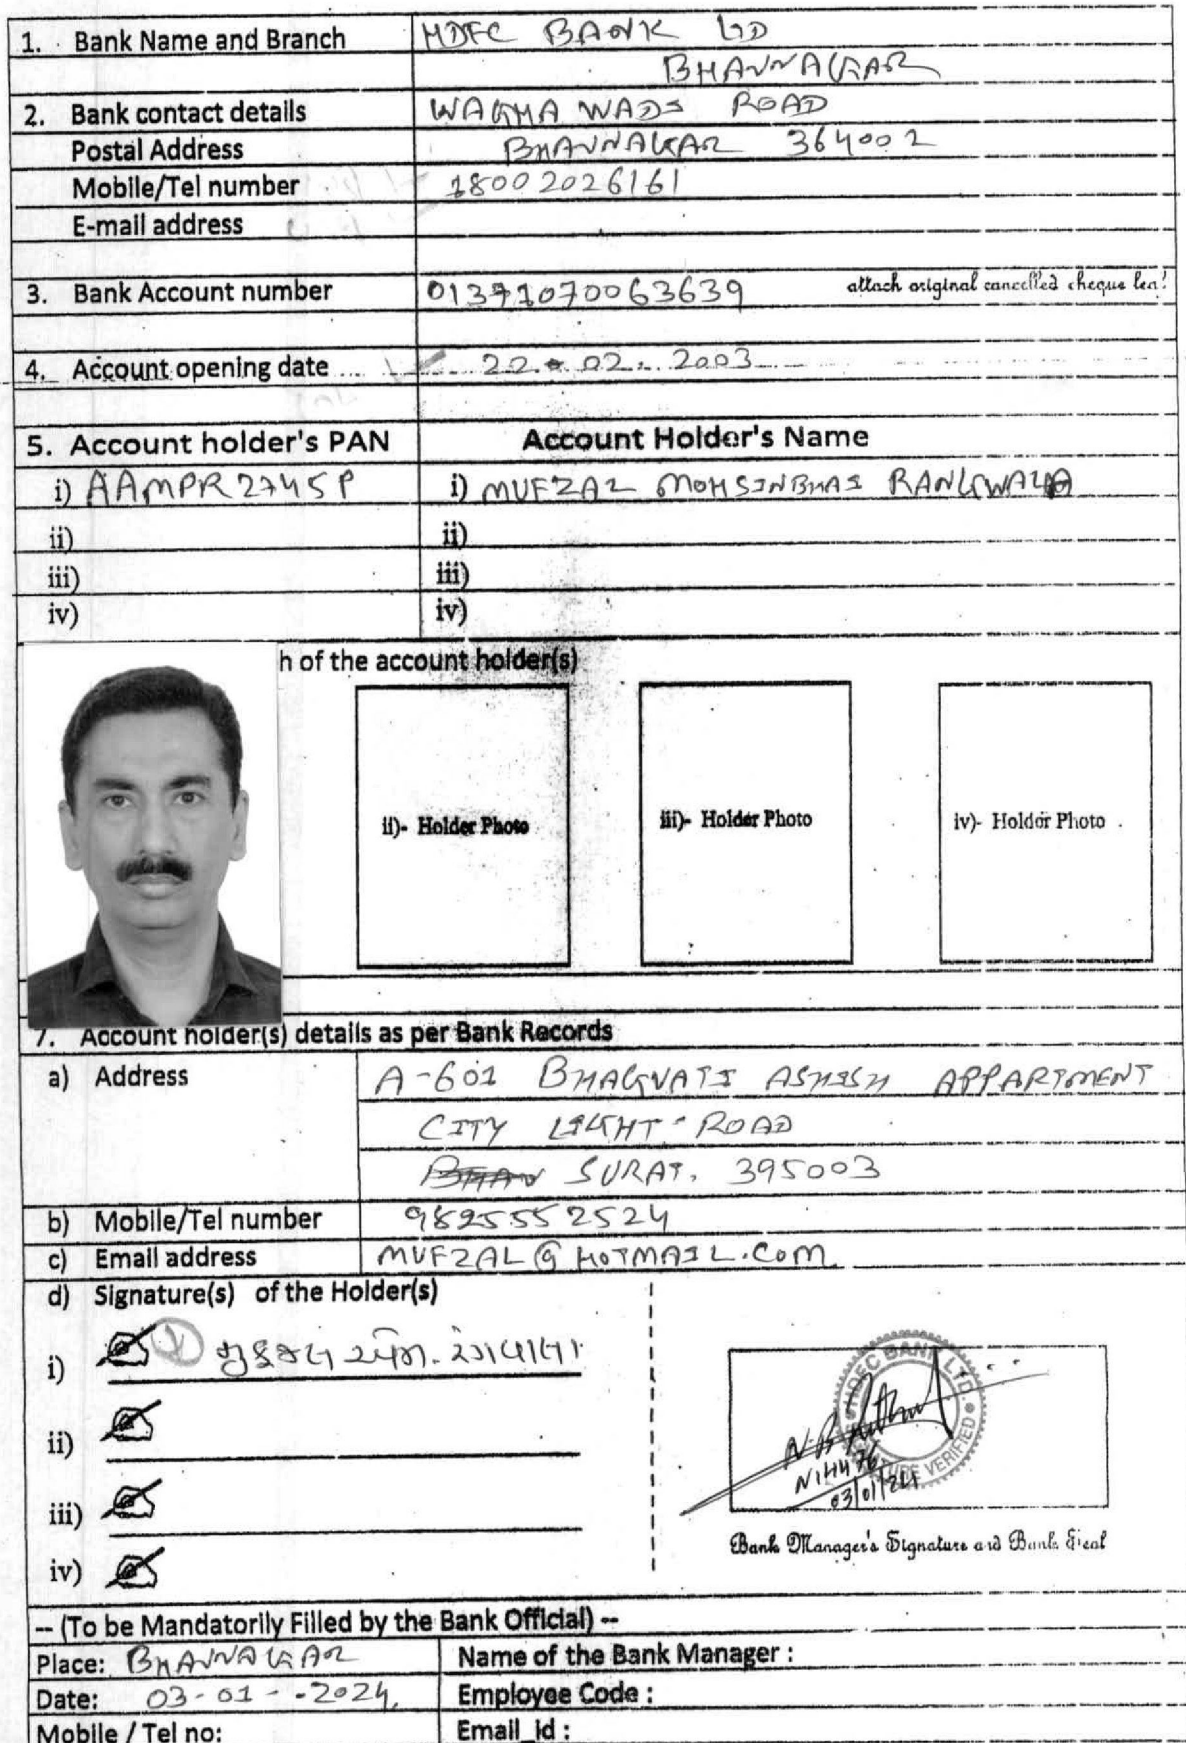 1. Bank Name and Branch HDFC BANK LTD
BHAVNAGAR
2. Bank contact details WAGHA WADI ROAD
Postal Address BHAVNAGAR 364002
Mobile/Tel number 18002026161
E-mail address
3. Bank Account number 01371070063639 attach original cancelled cheque lea!
4. Account opening date 22.02.2003
5. Account holder's PAN Account Holder's Name
i) AAMPR2745P i) MUFZAL MOHSINBHAI RANGWALA
ii) ii)
iii) iii)
iv) iv)
h of the account holder(s)
ii)- Holder Photo iii)- Holder Photo iv)- Holder Photo
7. Account holder(s) details as per Bank Records
a) Address A-601 BHAGVATI ASHISH APPARTMENT
CITY LIGHT ROAD
SURAT. 395003
b) Mobile/Tel number 9825552524
c) Email address MUFZAL@HOTMAIL.COM
d) Signature(s) of the Holder(s)
i) મુફઝલ એમ. રંગવાલા
ii)
iii)
iv)
HDFC BANK LTD.
SIGNATURE VERIFIED
03/01/24
Bank Manager's Signature and Bank Seal
-- (To be Mandatorily Filled by the Bank Official) --
Place: BHAVNAGAR Name of the Bank Manager :
Date: 03-01-2024 Employee Code :
Mobile / Tel no: Email_id :